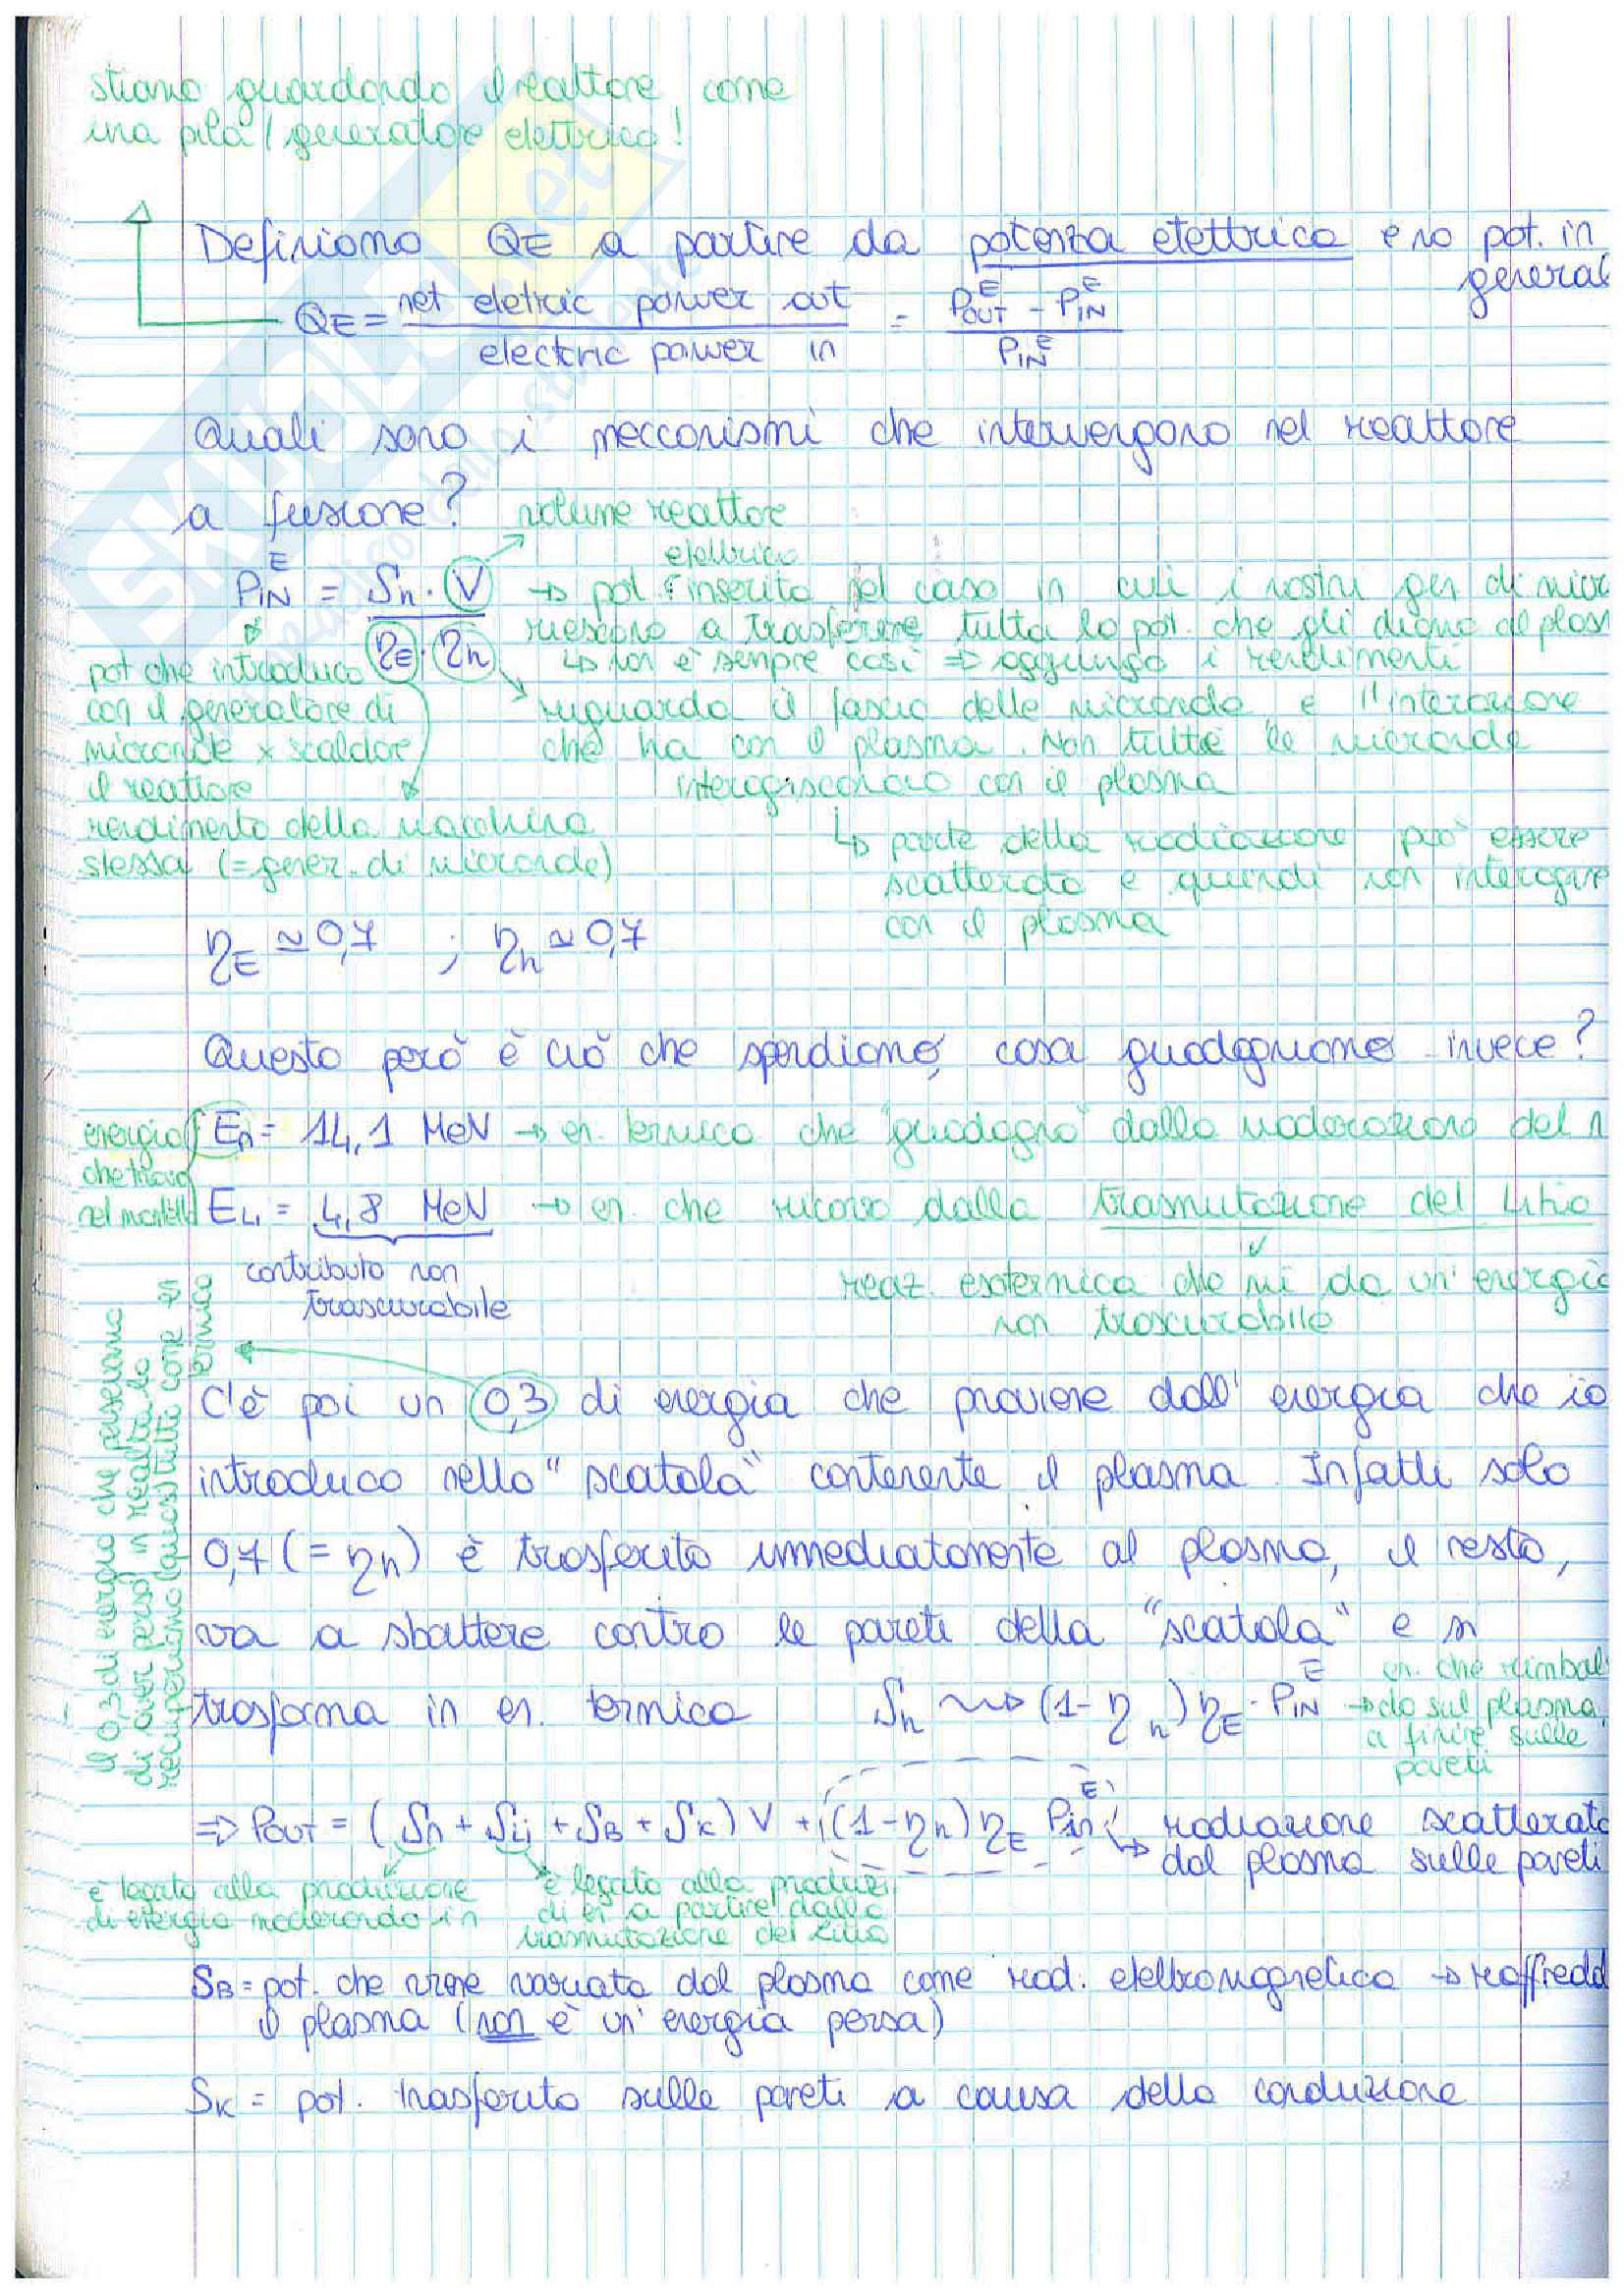 stiamo guardando il reattore come
una pila / generatore elettrico!
Definiamo QE a partire da potenza elettrica e no pot. in
general
QE = net eletric power out / electric power in = (P_OUT^E - P_IN^E) / P_IN^E
Quali sono i meccanismi che intervengono nel reattore
a fusione?
volume reattore
P_IN^E = Sh · V / ηE · ηh
elettrica
→ pot. inserita nel caso in cui i nostri gen di micr
riescono a trasferire tutta la pot. che gli diamo al plasm
↳ non è sempre così ⇒ aggiungo i rendimenti
pot che introduco
con il generatore di
microonde x scaldare
il reattore
riguarda il fascio delle microonde e l'interazione
che ha con il plasma. Non tutte le microonde
interagiscono con il plasma
rendimento della macchina
stessa (= gener. di microonde)
↳ parte della radiazione può essere
scatterata e quindi non interagire
con il plasma
ηE ≃ 0,7 ; ηh ≃ 0,7
Questo però è ciò che spendiamo, cosa guadagniamo invece?
energia
che trovo
nel mantello
En = 14,1 MeV → en. termica che "guadagno" dalla moderazione del n
ELi = 4,8 MeV → en. che ricavo dalla trasmutazione del Litio
contributo non
trascurabile
reaz. esotermica che mi da un'energia
non trascurabile
C'è poi un 0,3 di energia che proviene dall'energia che io
introduco nella "scatola" contenente il plasma. Infatti solo
0,7 (= ηh) è trasferito immediatamente al plasma, il resto,
va a sbattere contro le pareti della "scatola" e si
trasforma in en. termica
Sh ⇝ (1-ηh) ηE · P_IN^E
→ en. che rimbal
da sul plasma,
a finire sulle
pareti
il 0,3 di energia che pensavamo
di aver perso, in realtà lo
recuperiamo (quasi) tutto come en
termica
⇒ P_OUT = (Sn + SLi + SB + SK) V + (1-ηh) ηE P_in^E
↳ radiazione scatterata
dal plasma sulle pareti
è legato alla produzione
di energia moderando i n
è legato alla produzi
di en a partire dalla
trasmutazione del Litio
SB = pot. che viene variata dal plasma come rad. elettromagnetica → raffredd
il plasma (non è un'energia persa)
SK = pot. trasferita sulle pareti a causa della conduzione